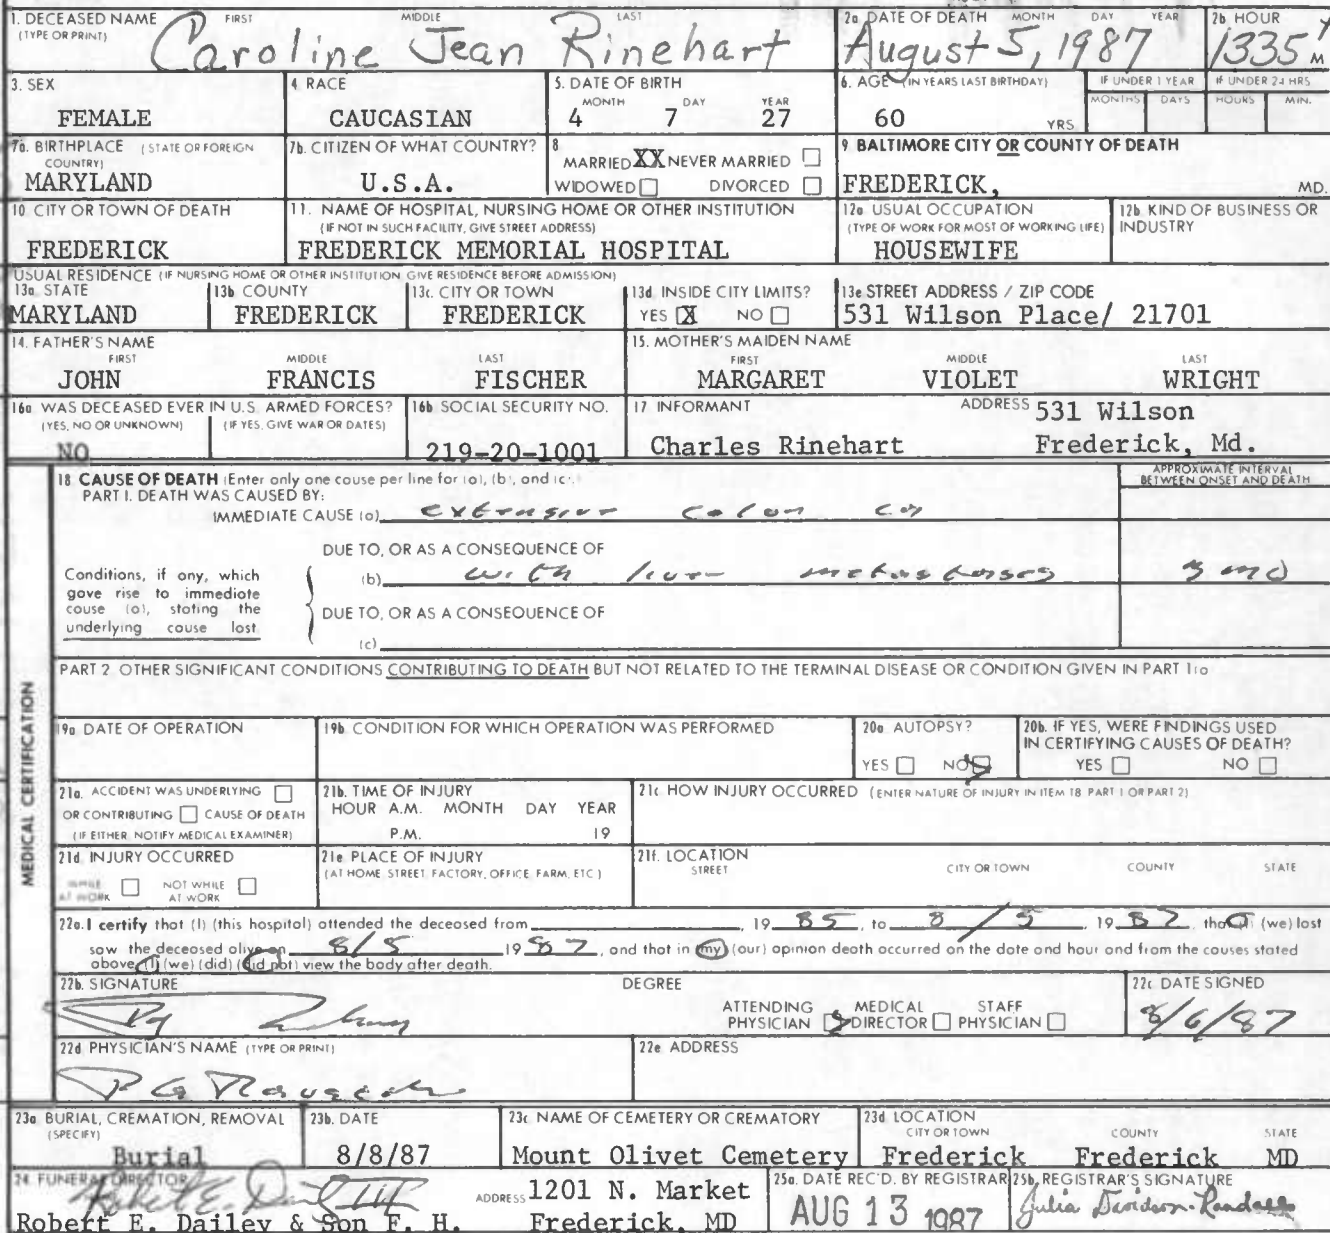 1. DECEASED NAME FIRST MIDDLE LAST
(TYPE OR PRINT)
Caroline Jean Rinehart
2a. DATE OF DEATH MONTH DAY YEAR
August 5, 1987
2b. HOUR
1335 M
3. SEX
FEMALE
4. RACE
CAUCASIAN
5. DATE OF BIRTH
MONTH DAY YEAR
4 7 27
6. AGE (IN YEARS LAST BIRTHDAY)
60 YRS.
IF UNDER 1 YEAR
MONTHS DAYS
IF UNDER 24 HRS.
HOURS MIN.
7a. BIRTHPLACE (STATE OR FOREIGN
COUNTRY)
MARYLAND
7b. CITIZEN OF WHAT COUNTRY?
U.S.A.
8.
MARRIED XX NEVER MARRIED
WIDOWED DIVORCED
9. BALTIMORE CITY OR COUNTY OF DEATH
FREDERICK, MD.
10. CITY OR TOWN OF DEATH
FREDERICK
11. NAME OF HOSPITAL, NURSING HOME OR OTHER INSTITUTION
(IF NOT IN SUCH FACILITY, GIVE STREET ADDRESS)
FREDERICK MEMORIAL HOSPITAL
12a. USUAL OCCUPATION
(TYPE OF WORK FOR MOST OF WORKING LIFE)
HOUSEWIFE
12b. KIND OF BUSINESS OR
INDUSTRY
USUAL RESIDENCE (IF NURSING HOME OR OTHER INSTITUTION GIVE RESIDENCE BEFORE ADMISSION)
13a. STATE
MARYLAND
13b. COUNTY
FREDERICK
13c. CITY OR TOWN
FREDERICK
13d. INSIDE CITY LIMITS?
YES X NO
13e STREET ADDRESS / ZIP CODE
531 Wilson Place/ 21701
14. FATHER'S NAME
FIRST MIDDLE LAST
JOHN FRANCIS FISCHER
15. MOTHER'S MAIDEN NAME
FIRST MIDDLE LAST
MARGARET VIOLET WRIGHT
16a WAS DECEASED EVER IN U.S. ARMED FORCES?
(YES, NO OR UNKNOWN) (IF YES, GIVE WAR OR DATES)
NO
16b SOCIAL SECURITY NO.
219-20-1001
17 INFORMANT ADDRESS
531 Wilson
Charles Rinehart Frederick, Md.
MEDICAL CERTIFICATION
18 CAUSE OF DEATH (Enter only one cause per line for (a), (b), and (c).
PART I. DEATH WAS CAUSED BY:
APPROXIMATE INTERVAL
BETWEEN ONSET AND DEATH
IMMEDIATE CAUSE (a) extensive colon ca
DUE TO, OR AS A CONSEQUENCE OF
(b) with liver metastases 3 mo
Conditions, if any, which
gave rise to immediate
cause (a), stating the
underlying cause last
DUE TO, OR AS A CONSEQUENCE OF
(c)
PART 2 OTHER SIGNIFICANT CONDITIONS CONTRIBUTING TO DEATH BUT NOT RELATED TO THE TERMINAL DISEASE OR CONDITION GIVEN IN PART 1(a
19a DATE OF OPERATION
19b CONDITION FOR WHICH OPERATION WAS PERFORMED
20a AUTOPSY?
YES NO
20b. IF YES, WERE FINDINGS USED
IN CERTIFYING CAUSES OF DEATH?
YES NO
21a. ACCIDENT WAS UNDERLYING
OR CONTRIBUTING CAUSE OF DEATH
(IF EITHER, NOTIFY MEDICAL EXAMINER)
21b. TIME OF INJURY
HOUR A.M. MONTH DAY YEAR
P.M. 19
21c HOW INJURY OCCURRED (ENTER NATURE OF INJURY IN ITEM 18 PART 1 OR PART 2)
21d INJURY OCCURRED
WHILE AT WORK NOT WHILE AT WORK
21e PLACE OF INJURY
(AT HOME STREET, FACTORY, OFFICE, FARM, ETC.)
21f. LOCATION
STREET CITY OR TOWN COUNTY STATE
22a. I certify that (I) (this hospital) attended the deceased from 19 85, to 8/5 1987, that (I) (we) last
saw the deceased alive on 8/5 1987, and that in (my) (our) opinion death occurred on the date and hour and from the causes stated
above, (I) (we) (did) (did not) view the body after death.
22b. SIGNATURE DEGREE
ATTENDING PHYSICIAN MEDICAL DIRECTOR STAFF PHYSICIAN
22c DATE SIGNED
8/6/87
22d PHYSICIAN'S NAME (TYPE OR PRINT)
22e ADDRESS
23a BURIAL, CREMATION, REMOVAL
(SPECIFY)
Burial
23b. DATE
8/8/87
23c NAME OF CEMETERY OR CREMATORY
Mount Olivet Cemetery
23d LOCATION
CITY OR TOWN COUNTY STATE
Frederick Frederick MD
24. FUNERAL DIRECTOR
Robert E. Dailey & Son F. H.
ADDRESS 1201 N. Market
Frederick, MD
25a. DATE REC'D. BY REGISTRAR
AUG 13 1987
25b. REGISTRAR'S SIGNATURE
Julia Davidson-Randall